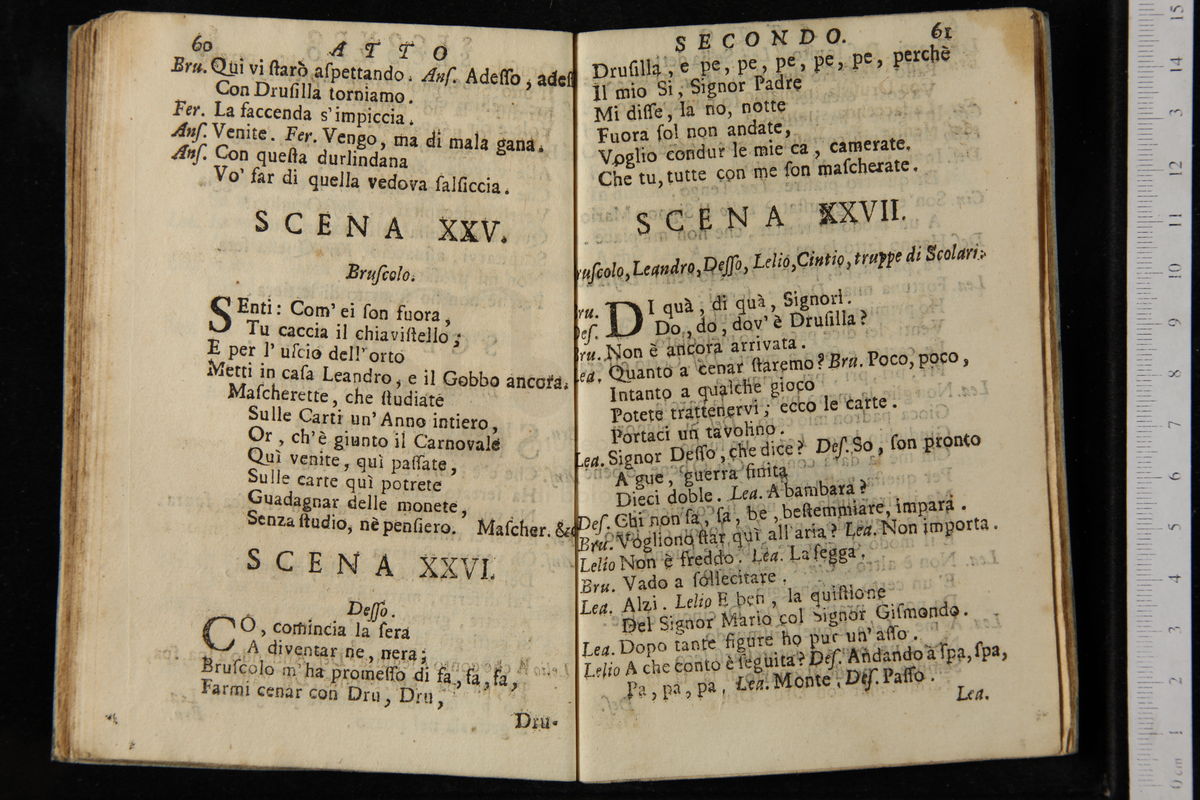 60
ATTO
Bru. Qui vi ſtarò aſpettando. Anſ. Adeſſo, adeſſ
Con Druſilla torniamo.
Fer. La faccenda s'impiccia.
Anſ. Venite. Fer. Vengo, ma di mala gana.
Anſ. Con queſta durlindana
Vo' far di quella vedova ſalſiccia.
SCENA XXV.
Bruſcolo.
SEnti: Com' ei ſon fuora,
Tu caccia il chiaviſtello;
E per l' uſcio dell'orto
Metti in caſa Leandro, e il Gobbo ancora.
Maſcherette, che ſtudiate
Sulle Carti un' Anno intiero,
Or, ch'è giunto il Carnovale
Quì venite, quì paſſate,
Sulle carte quì potrete
Guadagnar delle monete,
Senza ſtudio, nè penſiero. Maſcher. &c
SCENA XXVI.
Deſſo.
CO, comincia la ſera
A diventar ne, nera;
Bruſcolo m'ha promeſſo di fa, fa, fa,
Farmi cenar con Dru, Dru,
Dru-
SECONDO.
61
Druſilla, e pe, pe, pe, pe, pe, perchè
Il mio Si, Signor Padre
Mi diſſe, la no, notte
Fuora ſol non andate,
Voglio condur le mie ca, camerate.
Che tu, tutte con me ſon maſcherate.
SCENA XXVII.
ruſcolo, Leandro, Deſſo, Lelio, Cintio, truppe di Scolari.
Bru. DI quà, di quà, Signori.
Deſ. Do, do, dov' è Druſilla?
Bru. Non è ancora arrivata.
Lea. Quanto a cenar ſtaremo? Bru. Poco, poco,
Intanto a qualche gioco
Potete trattenervi; ecco le carte.
Portaci un tavolino.
Lea. Signor Deſſo, che dice? Deſ. So, ſon pronto
A gue, guerra finita
Dieci doble. Lea. A bambara?
Deſ. Chi non ſa, ſa, be, beſtemmiare, impara.
Bru. Vogliono ſtar quì all'aria? Lea. Non importa.
Lelio Non è freddo. Lea. La ſegga.
Bru. Vado a ſollecitare.
Lea. Alzi. Lelio E ben, la quiſtione
Del Signor Mario col Signor Giſmondo.
Lea. Dopo tante figure ho pur un' aſſo.
Lelio A che conto è ſeguita? Deſ. Andando a ſpa, ſpa,
Pa, pa, pa, Lea. Monte. Deſ. Paſſo.
Lea.
15
14
13
12
11
10
9
8
7
6
5
4
3
2
1
0 cm